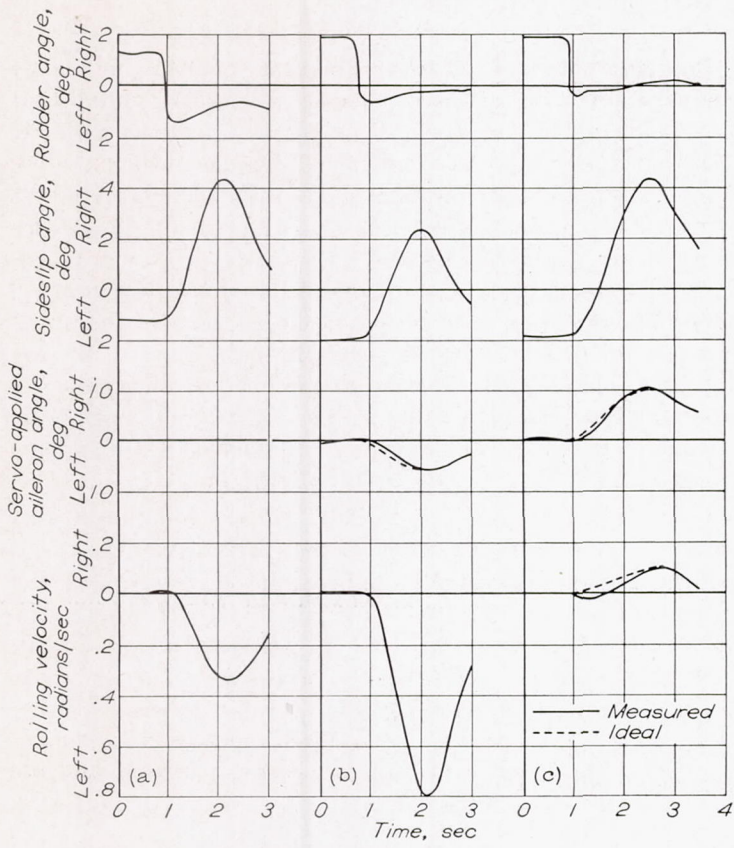 Rudder angle,
deg
Left Right
2
0
2
Sideslip angle,
deg
Left Right
4
2
0
2
Servo-applied
aileron angle,
deg
Left Right
10
0
10
Rolling velocity,
radians/sec
Left Right
.2
0
.2
.4
.6
.8
(a) (b) (c)
Measured
Ideal
0 1 2 3 0 1 2 3 0 1 2 3 4
Time, sec